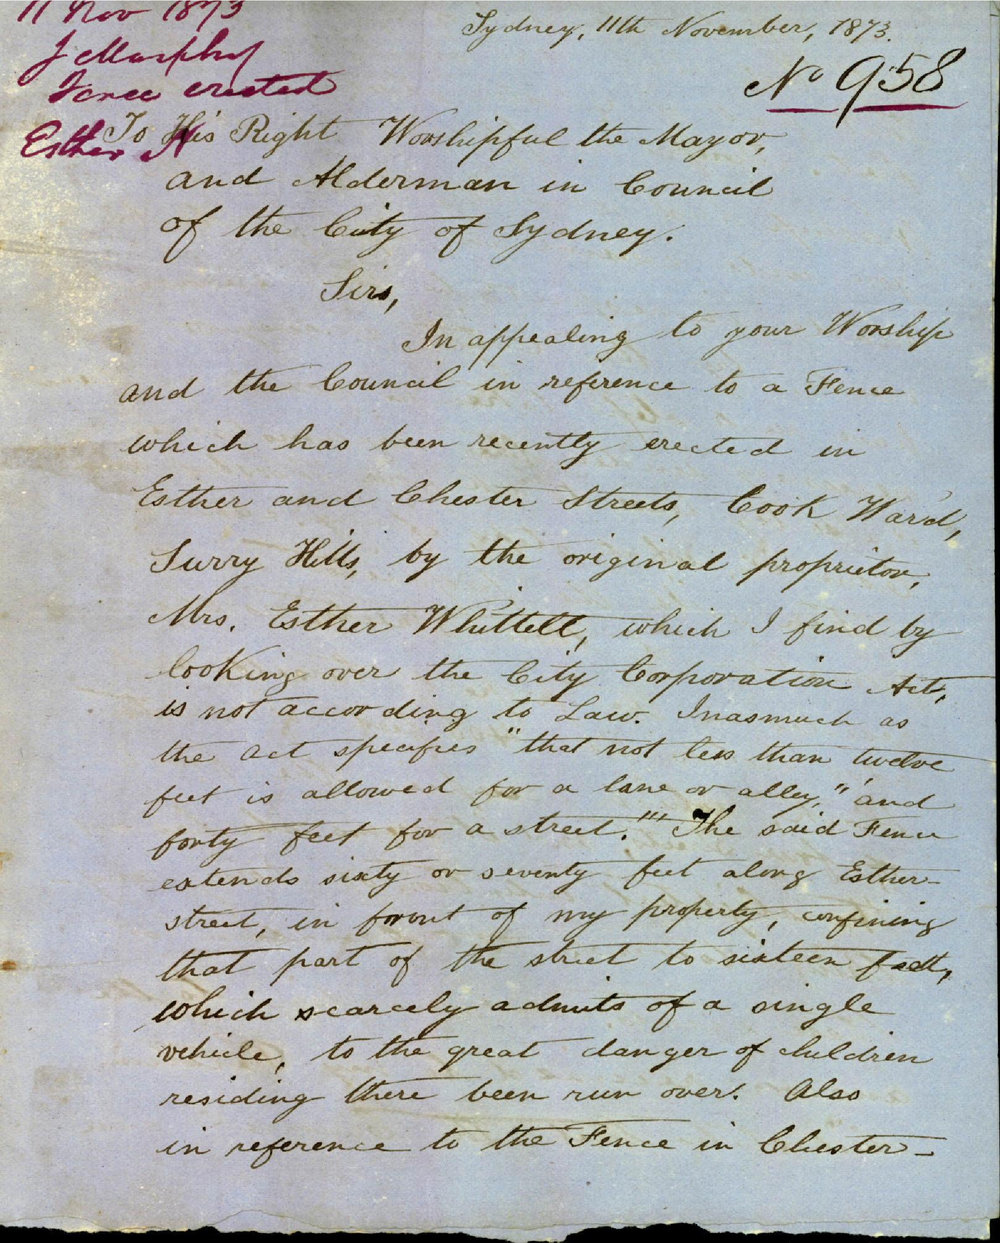 11 Nov 1873
J Murphy
Fence erected
Esther
Sydney, 11th November, 1873.
No 958
To His Right Worshipful the Mayor,
and Alderman in Council
of the City of Sydney.
Sirs,
In appealing to your Worship
and the Council in reference to a Fence
which has been recently erected in
Esther and Chester Streets, Cook Ward,
Surry Hills, by the original proprietor,
Mrs. Esther Whittell, which I find by
looking over the City Corporation Act,
is not according to Law. Inasmuch as
the act specifies "that not less than twelve
feet is allowed for a lane or alley," "and
forty feet for a street."" The said Fence
extends sixty or seventy feet along Esther-
street, in foront of my property, confining
that part of the street to sixteen feet,
which scarcely admits of a single
vehicle, to the great danger of children
residing there been run over. Also
in reference to the Fence in Chester-